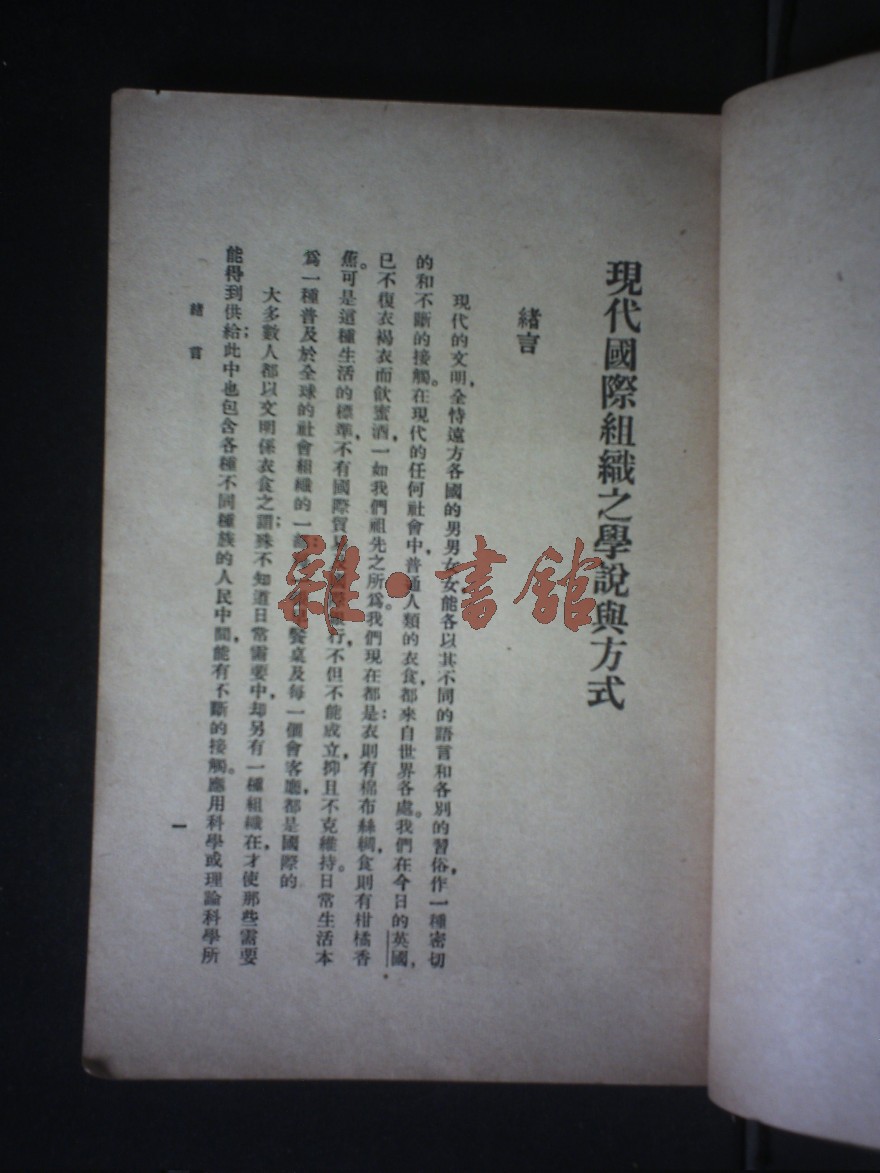 現代國際組織之學說與方式
緒言
現代的文明，全恃遠方各國的男男女女能各以其不同的語言和各別的習俗，作一種密切
的和不斷的接觸。在現代的任何社會中，普通人類的衣食，都來自世界各處。我們在今日的英國，
已不復衣褐衣而飲蜜酒，一如我們祖先之所爲。我們現在都是：衣則有棉布絲綢，食則有柑橘香
蕉。可是這種生活的標準，不有國際貿行，不但不能成立，抑且不克維持。日常生活本
爲一種普及於全球的社會組織的一餐桌及每一個會客廳，都是國際的
大多數人都以文明係衣食之謂；殊不知道日常需要中，却另有一種組織在，才使那些需要
能得到供給；此中也包含各種不同種族的人民中間，能有不斷的接觸。應用科學或理論科學所
緒言
一
雜·書館